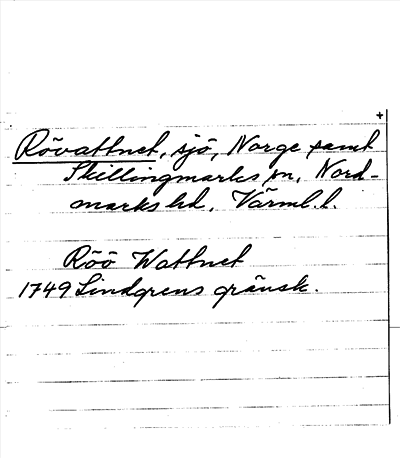 +
Rövattnet, sjö, Norge samt
Skillingmarks sn, Nord-
marks hd, Värml. l.
Röö Wattnet
1749 Lindgrens gränsk.